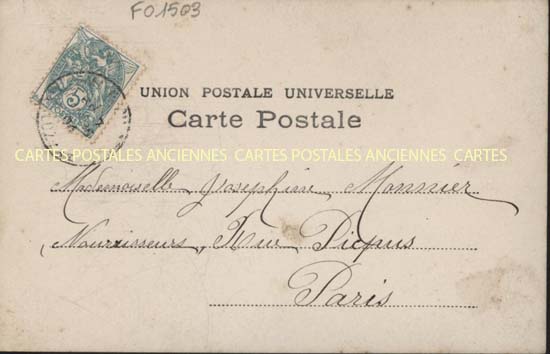 FO1503
5
UNION POSTALE UNIVERSELLE
Carte Postale
CARTES POSTALES ANCIENNES CARTES POSTALES ANCIENNES CARTES
Mademoiselle Josephine Monnier
Nourrisseurs, Rue Picpus
Paris